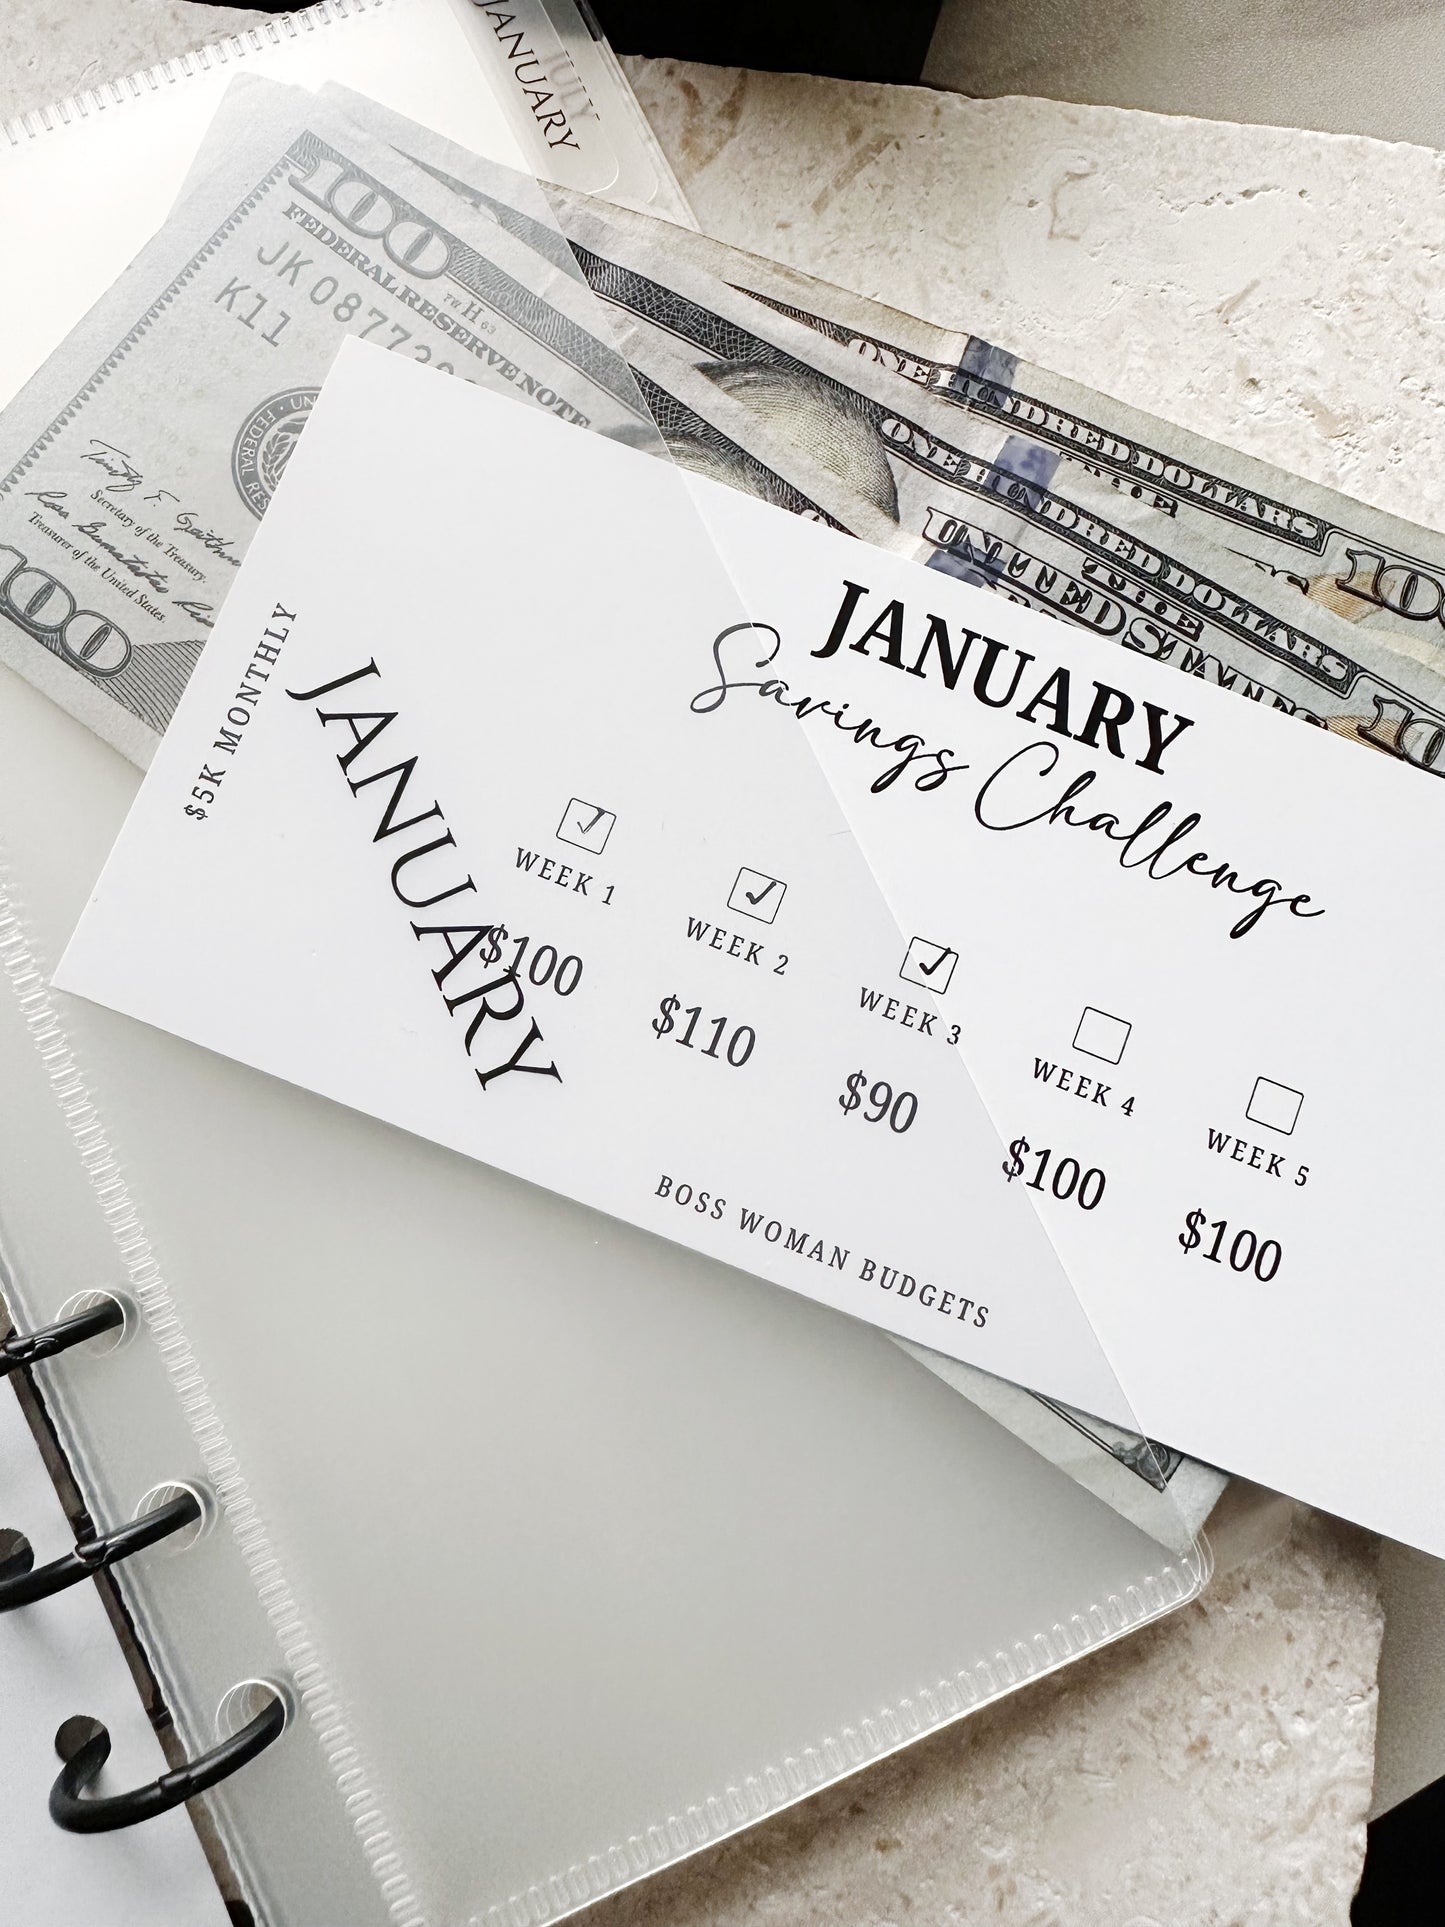 JULY
JANUARY
100
FEDERAL RESERVE NOTE
TW H 63
JK 08773
K11
Secretary of the Treasury.
Treasurer of the United States.
100
ONE HUNDRED DOLLARS
100
ONE HUNDRED DOLLARS
100
UNITED STATES
$5K MONTHLY
JANUARY
JANUARY
Savings Challenge
WEEK 1
WEEK 2
WEEK 3
WEEK 4
WEEK 5
$100
$110
$90
$100
$100
BOSS WOMAN BUDGETS